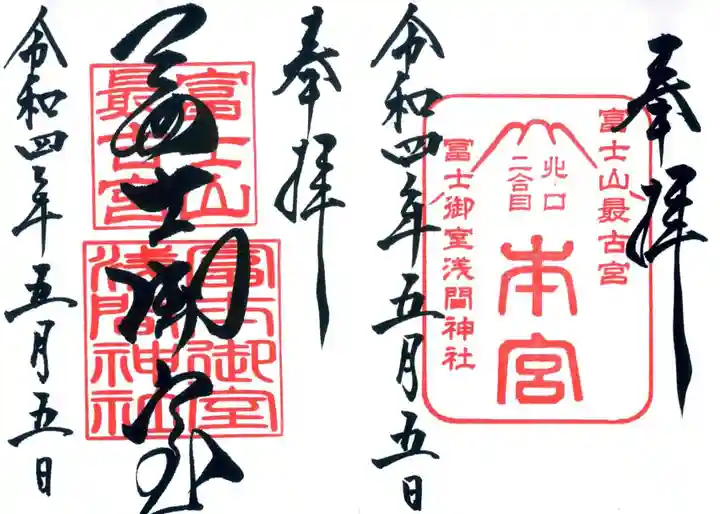 奉拝
富士山
最古宮
富士御室
浅間神社
富士御室
令和四年五月五日
奉拝
富士山最古宮
北口
二合目
本宮
冨士御室浅間神社
令和四年五月五日